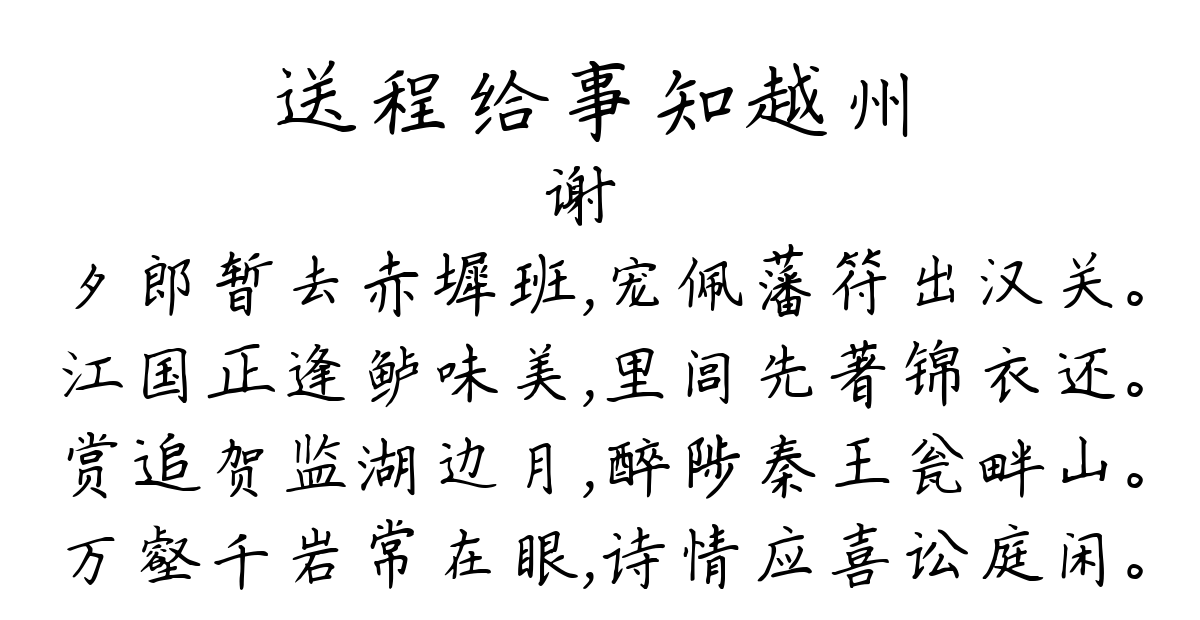 送程给事知越州
谢
夕郎暂去赤墀班,宠佩藩符出汉关。
江国正逢鲈味美,里闾先著锦衣还。
赏追贺监湖边月,醉陟秦王瓮畔山。
万壑千岩常在眼,诗情应喜讼庭闲。